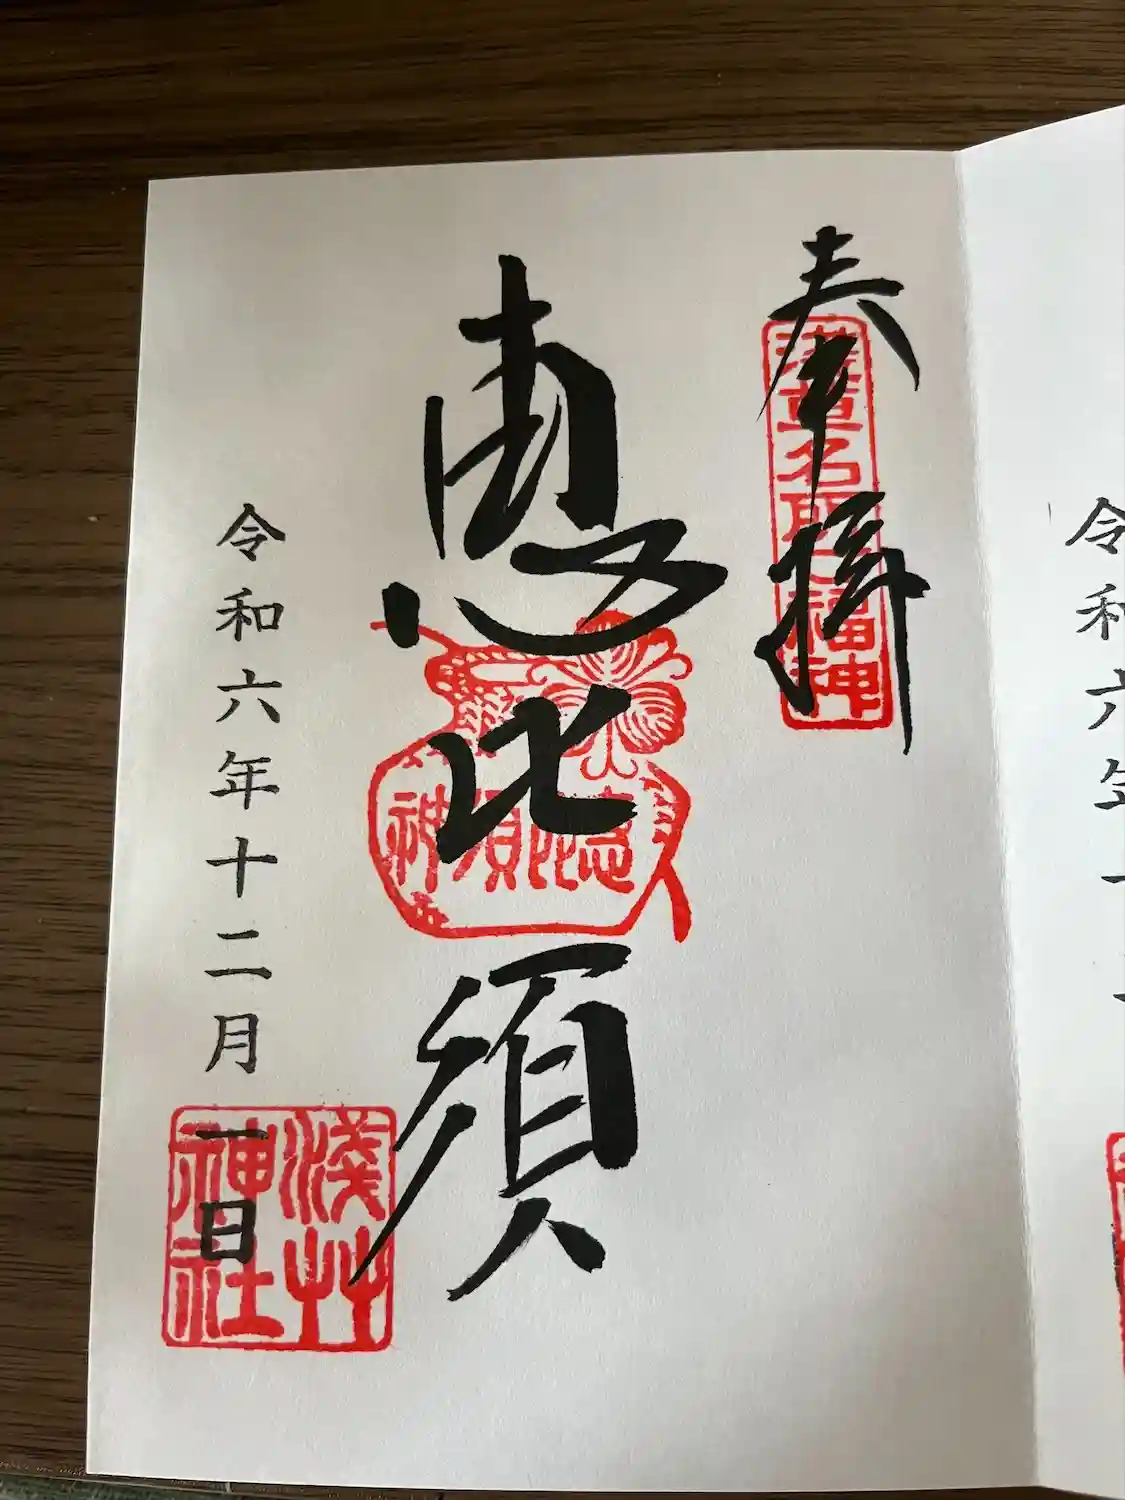 奉拝
浅草名所七福神
恵比須
恵比須神
令和六年十二月一日
淺草神社
令和六年十